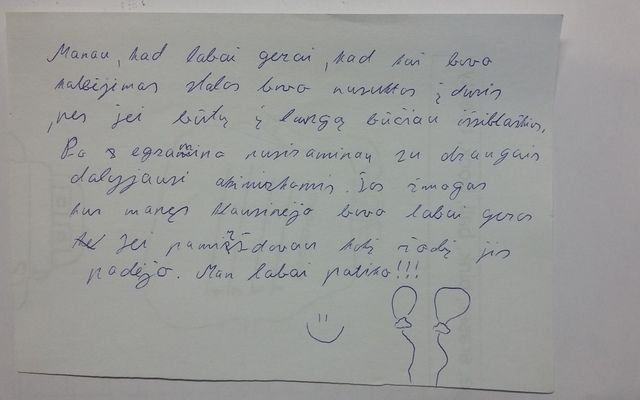 Manau, kad labai gerai, kad kai buvo
kalbėjimas stalas buvo nusuktas į duris
, nes jei būtų į langą būčiau išsiblaškius.
Po egzamino nusiraminau su draugais
dalyjausi akimirkomis. Tas žmogus
kur manęs klausinėjo buvo labai geras
jei pamirždavau kokį žodį jis
padėjo. Man labai patiko!!!